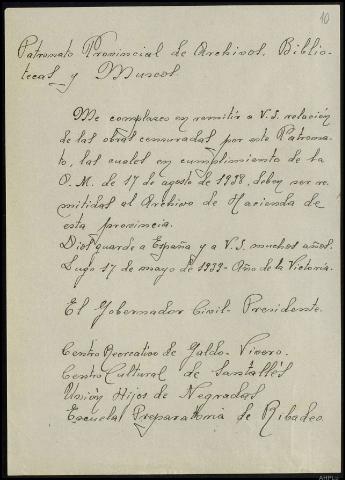 10
Patronato Provincial de Archivos, Biblio-
tecas y Museos
Me complazco en remitir a V.S. relación
de las obras censuradas por este Patrona-
to, las cuales en cumplimiento de la
O.M. de 17 de agosto de 1938, deben ser re-
mitidas al Archivo de Hacienda de
esta provincia.
Dios guarde a España y a V.S. muchos años.
Lugo 17 de mayo de 1939 - Año de la Victoria.
El Gobernador Civil - Presidente.
Centro Recreativo de Galdo - Vivero.
Centro Cultural de Santallés
Unión Hijos de Negradas
Escuela Preparatoria de Ribadeo
AHPLu